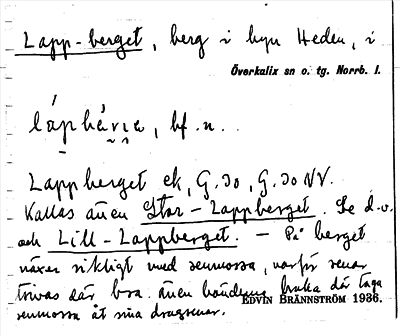 Lapp-berget, berg i byn Heden, i
Överkalix sn o. tg. Norrb. l.
bf. n.
Lappberget ek, G. 30, G. 30 NV.
Kallas även Stor-Lappberget. Se d.o.
och Lill-Lappberget. — På berget
växer rikligt med renmossa, varför renar
trivas där bra. Även bönderna bruka där taga
renmossa åt sina dragrenar.
EDVIN BRÄNNSTRÖM 1936.